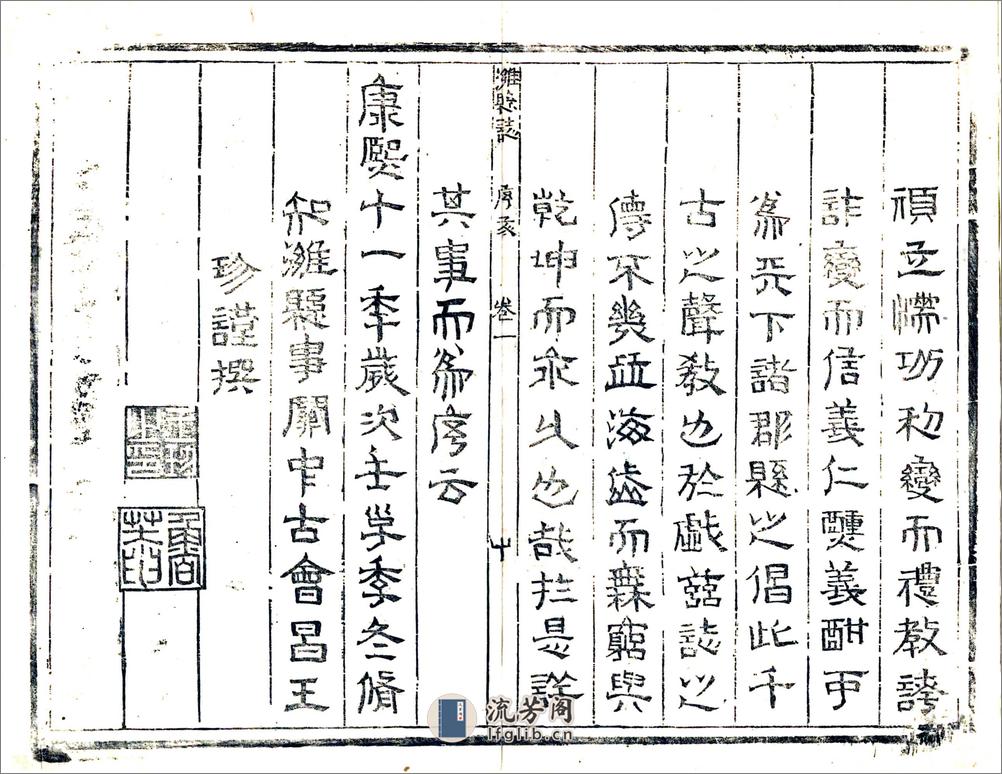 頑立懦功利變而禮教誇
詐變而信義仁醺義酣可
為天下諸郡縣之倡此千
古之聲教也於戲茲誌之
傳不幾亘海岱而無窮與
乾坤而永久也哉於是詳
濰縣誌 序 卷一 十
其事而為序云
康熙十一季歲次壬子季冬脩
知濰縣事關中古會昌王
珍謹撰
王珍之印
流芳阁
lfglib.cn